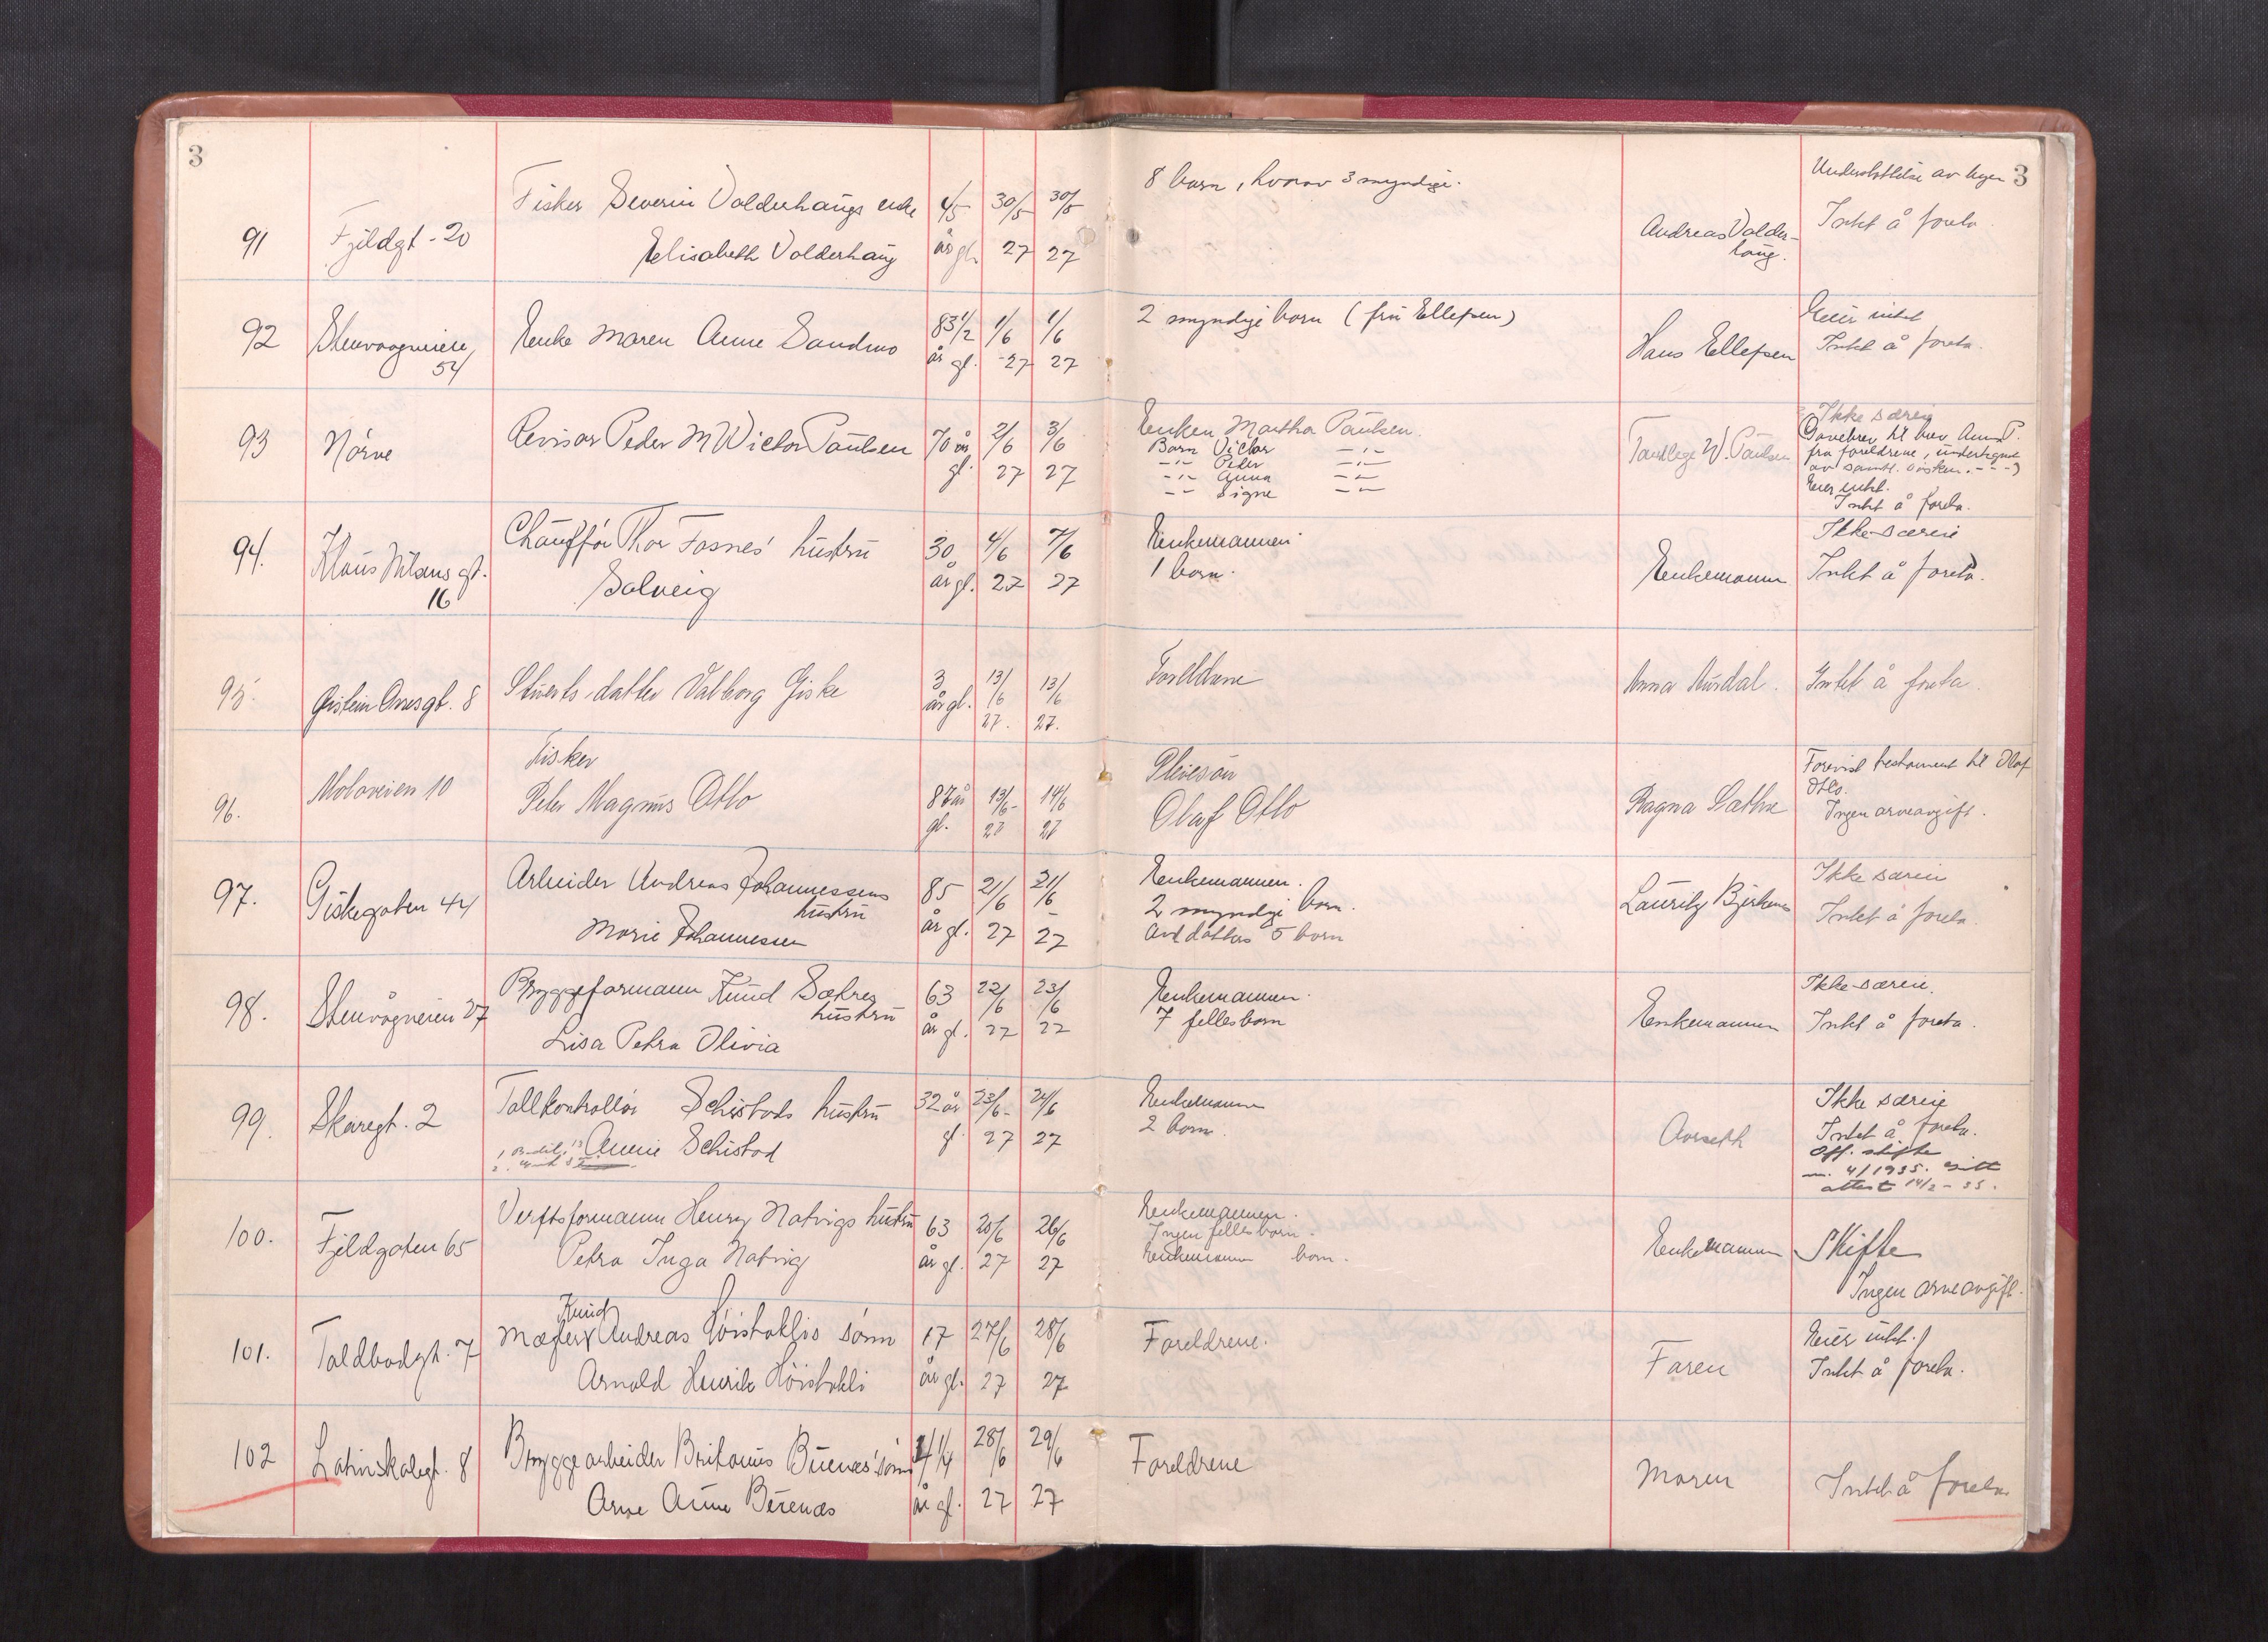 3
3
91
Fjeldgt. 20
Fisker Severin Valderhaugs enke
Elisabeth Valderhaug
år gl.
30/5 27
30/5 27
8 barn, hvorav 3 myndige.
Andreas Valder-
haug.
Understøttelse av byen
Intet å foreta
92
54
Enke Maren Anne Sandmo
83 1/2
år gl.
1/6 27
1/6 27
2 myndige barn (fru Ellefsen)
Hans Ellefsen
Eier intet
Intet å foreta.
93
Nörve
Revisor Peder M Wictor Paulsen
70 år
gl.
2/6 27
3/6 27
Enken Martha Paulsen.
Barn Victor —"—
—"— Peder —"—
—"— Anna —"—
—"— Signe —"—
Tandlege W. Paulsen
Ikke særeie
Gavebrev til Anna P.
fra foreldrene, undertegnet
av samtl. søsken.
Eier intet.
Intet å foreta.
94.
Klaus Nilsens gt.
16
Chauffør Thor Fosnes' hustru
Solveig
30
år gl.
4/6 27
7/6 27
Enkemannen
1 barn.
Enkemannen
Ikke særeie
Intet å foreta.
95.
8
datter Valborg Giske
3
år gl.
13/6 27.
13/6 27.
Foreldrene
Anna Aursdal.
Intet å foreta.
96.
Moloveien 10
Fisker
Peter Magnus Otto
87 år
gl.
13/6 27
14/6 27
Pleiesön
Olaf Otto
Ragna Sæthre
Forevist testament til Olaf
Otto.
Ingen arveavgift.
97.
Giskegaten 44
Arbeider Andreas Johannessens
hustru
Marie Johannessen
85
år gl.
21/6 27
21/6 27
Enkemannen.
2 myndige barn.
datters 5 barn
Lauritz Bjerknes
Ikke særeie
Intet å foreta.
98.
Stenvågneien 27
Bryggeformann Knud Sætres
hustru
Lisa Petra Olivia
63
år gl.
22/6 27
23/6 27
Enkemannen.
7 fellesbarn
Enkemannen
Ikke særeie.
Intet å foreta.
99.
Skaregt. 2
Tollkontrollør Schistads hustru
Annie Schistad
32 år
gl.
23/6 27
24/6 27
Enkemannen
2 barn.
Aarseth
Ikke særeie
Intet å foreta.
Off. skifte
nr. 4/1935.
attest 14/2 - 35.
100.
Fjeldgaten 65
Verftsformann Henry Natvigs hustru
Petra Inga Natvig
63
år gl.
25/6 27
26/6 27
Enkemannen.
Ingen fellesbarn.
Enkemannens barn.
Enkemannen
Skifte
Ingen arveavgift.
101.
Toldbodgt. 7
Knud
Mægler Andreas Höistaklis sønn
Arnold Henrik Höistakli
17
år gl.
27/6 27
28/6 27
Foreldrene.
Faren
Eier intet.
Intet å foreta.
102
Latinskolegt. 8
Bryggearbeider Buenæs' sönn
Arne
1/4
år gl.
28/6 27
29/6 27
Foreldrene
Moren
Intet å foreta.